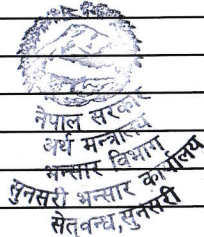 नेपाल सरकार
अर्थ मन्त्रालय
भन्सार विभाग
सुनसरी भन्सार कार्यालय
सेतुवन्ध, सुनसरी